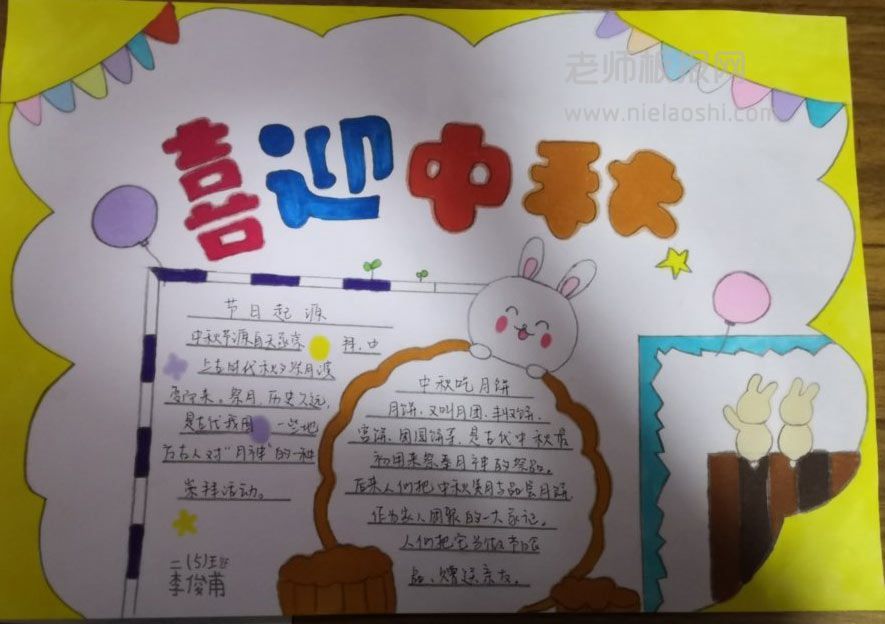 老师板报网
www.nielaoshi.com
喜迎中秋
节日起源
中秋节源自天象崇拜,由
上古时代秋夕祭月演
变而来。祭月,历史久远,
是古代我国一些地
方古人对“月神”的一种
崇拜活动。
二(5)班
李俊甫
中秋吃月饼
月饼、又叫月团、丰收饼、
宫饼、团圆饼等,是古代中秋最
初用来祭奉月神的祭品。
后来人们把中秋赏月与品尝月饼,
作为家人团聚的一大象记。
人们把它当做节日
品、赠送亲友。